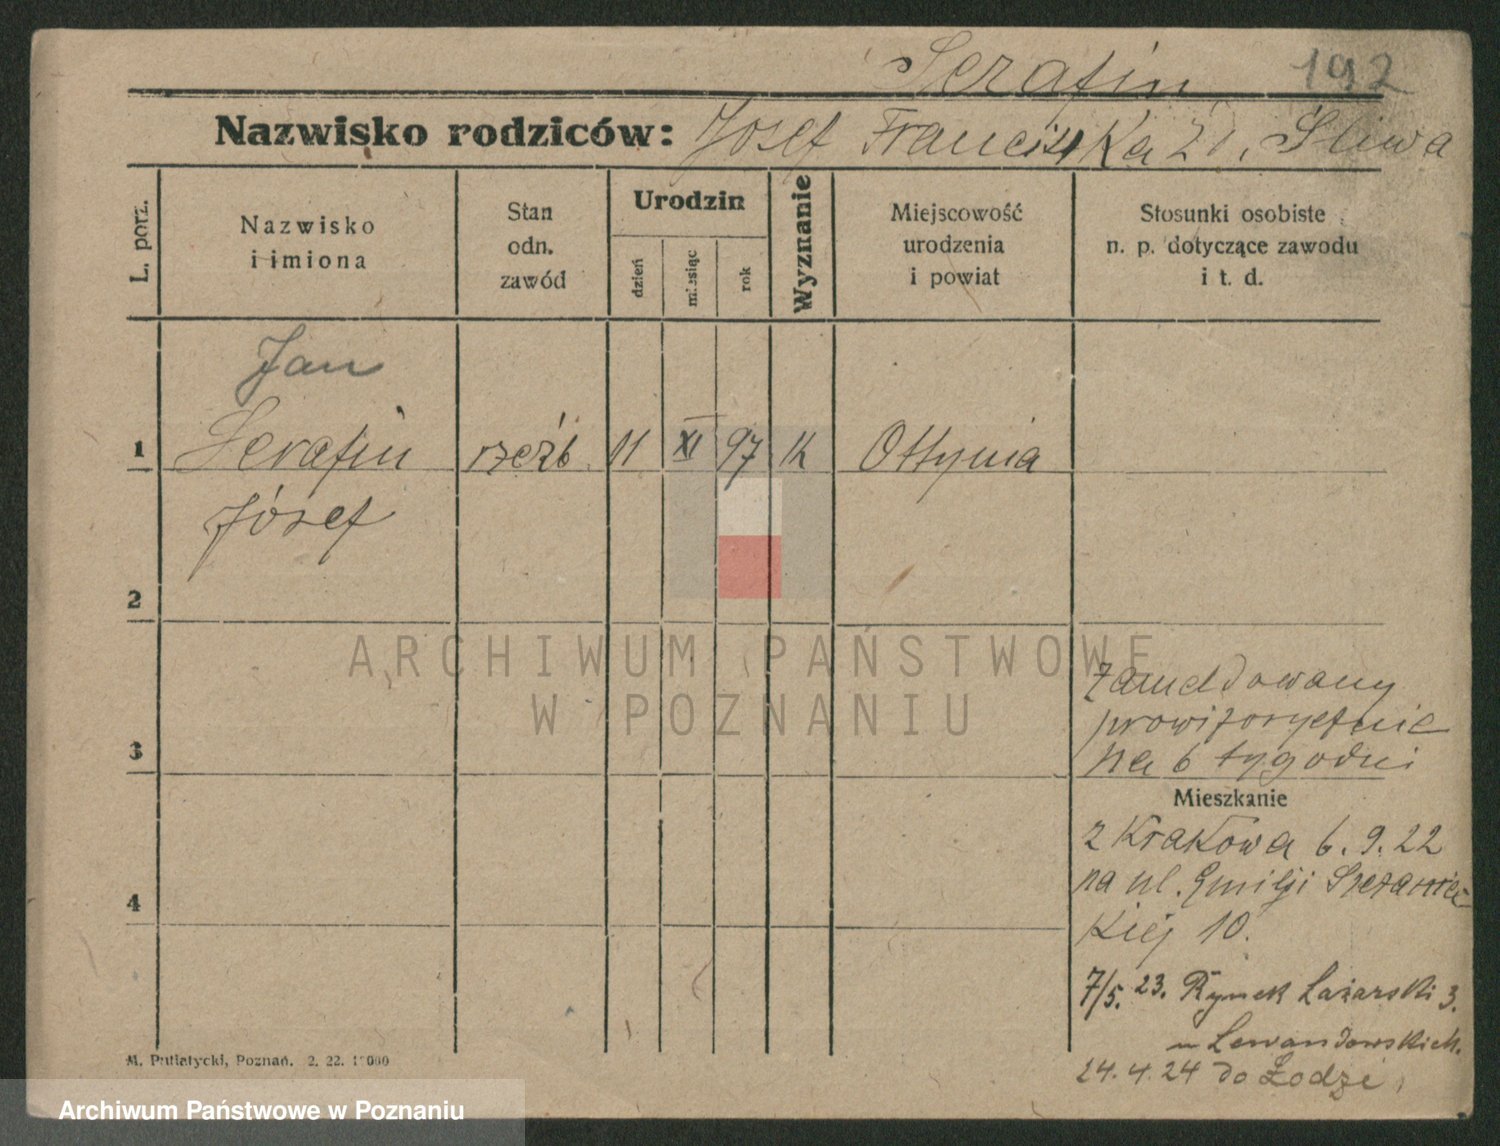 Serafin 192
Nazwisko rodziców: Josef Franciszka zd. Śliwa
L. porz.
Nazwisko
i imiona
Stan
odn.
zawód
Urodzin
dzień
miesiąc
rok
Wyznanie
Miejscowość
urodzenia
i powiat
Stosunki osobiste
n. p. dotyczące zawodu
i t. d.
Jan
1 Serafin rzeźb 11 XI 97 K Ottynia
Józef
2
3
4
zameldowany
prowizorycznie
na 6 tygodni
Mieszkanie
z Krakowa 6.9.22
na ul. Emilji Szczaniec
kiej 10.
7/5. 23. Rynek Łazarski 3.
u Lewandowskich.
24.4.24 do Łodzi
M. Putiatycki, Poznań. 2. 22.
ARCHIWUM PAŃSTWOWE
W POZNANIU
Archiwum Państwowe w Poznaniu